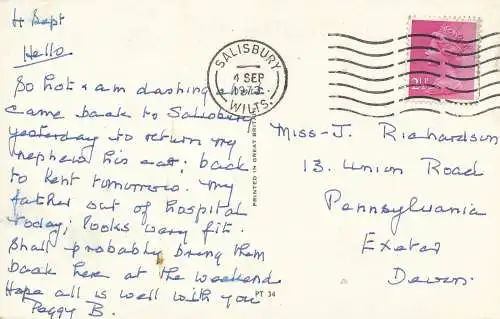 4 Sept
Hello
So hot & am dashing about.
Came back to Salisbury
yesterday to return my
nephew his cat; back
to Kent tomorrow. My
father out of hospital
today; looks very fit.
Shall probably bring them
back here at the weekend
Hope all is well with you
Peggy B.
SALISBURY
4 SEP
1973
WILTS.
2½
PRINTED IN GREAT BRIT
PT 34
Miss J. Richardson
13. Union Road
Pennsylvania
Exeter
Devon.